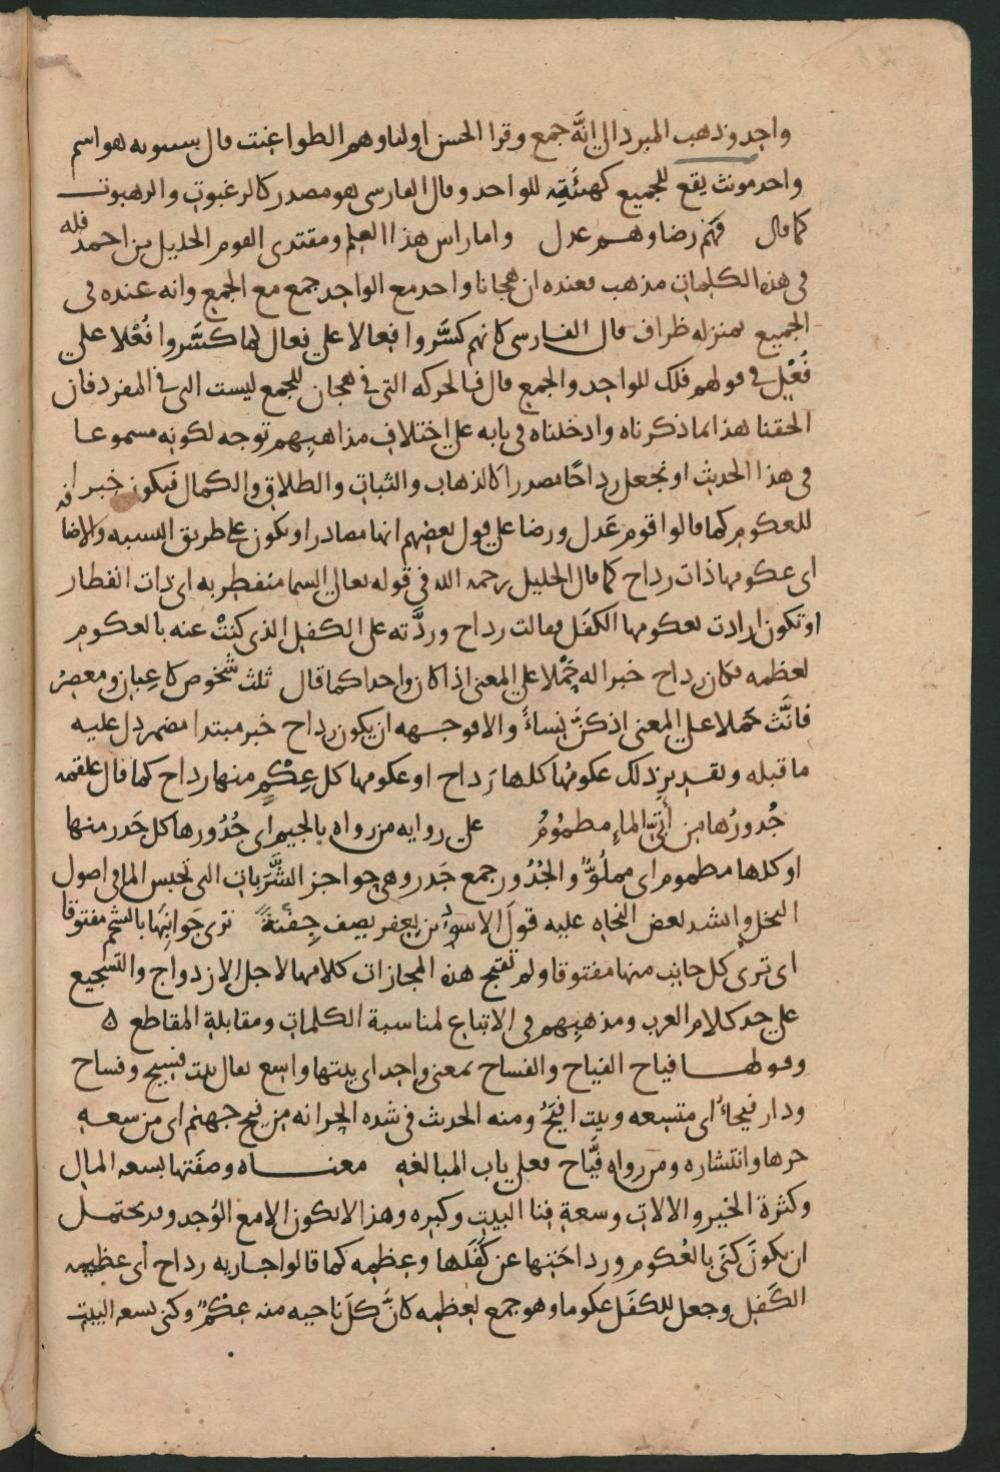 واحد وذهب المبرد الى انَّه جمع وقرا الحسن اولياوهم الطواغيت قال سيبويه هو اسم
واحد مونث يقع للجميع كهيئَتِه للواحد وقال الفارسي هو مصدر كالرغبوتِ والرهبوت
كما قال فهم رضا وهـم عدل واما راس هذا العلم ومقتدى القوم الخليل بن احمد فله
في هذه الكلمات مذهب فعنده ان هجانا واحد مع الواحد جمع مع الجمع وانه عنده في
الجميع بمنزله ظراف قال الفارسي كانهم كسَّروا فِعالا على فعال كما كسَّروا فُعْلا على
فُعْل في قولهم فلك للواحد والجمع قال فالحركه التي في هجان للجمع ليست التي في المفرد فان
الحقنا هذا بما ذكرناه وادخلناه في بابه على اختلاف مذاهبهم توجه لكونه مسموعا
في هذا الحديث او نجعل رداحًا مصدرا كالذهاب والثبات والطلاق والكمال فيكون خبرا
للعكوم كما قالوا قوم عَدل ورضا على قول بعضهم انها مصادر او يكون على طريق النسبه والاضافه
اى عكومها ذات رداح كما قال الخليل رحمه الله في قوله تعالى السما منفطر به اى ذات انفطار
او تكون ارادت بعكومها الكفَل فقالت رداح وردَّته على الكفل الذي كنَتْ عنه بالعكوم
لعظمه فكان رداح خبرا له حَمْلا على المعنى اذا كان واحدا كما قال ثلث شخوص كاعبان ومعصرُ
فانَّث حَملا على المعنى اذ كنَّ نِساءً والاوجهه ان يكون رداح خبر مبتدا مضمر دل عليه
ما قبله وتقدير ذلك عكومُها كلها رَداح او عكومها كل عِكْمٍ منها رداح كما قال علقمه
جُدورُها من أَتِيّ الماءِ مطمُومُ على روايه من رواه بالجيم اى جُدُورها كل جَدر منها
او كلها مطموم اى مملُوٌّ والجُدُور جمع جَدر وهي حواجز الشَّرَبات التي تحبس الما في اصول
النخل وانشد بعض النحاه عليه قولَ الاسود بن يعفر يصف جِفْنةً ترى جَوانِبَها بالشحم مفتوقا
اى ترى كل جانب منها مفتوقا ولم تقبح هذه المجازات كلامها لاجل الازدواج والتسجيع
على حد كلام العرب ومذهبهم في الاتباع لمناسبة الكلمات ومقابلة المقاطع ه
وقولها فياح الفياح والفساح بمعنى واحد اى بيتها واسع يقال بيت فسيح وفساح
ودار فيحاءُ اى متسعه وبيت افيَحُ ومنه الحديث في شده الحر انه من فيح جهنم اى من سعه
حرها وانتشاره ومن رواه فيَّاح فعلى باب المبالغه معنـاه وصفَتها بسعه المال
وكثرة الخير والالات وسعة فنا البيت وكبره وهذا لا يكون الا مع الوُجد وقد يحتمل
ان يكونَ كَنَى بالعُكوم ورداحَتِها عن كَفَلها وعظمه كما قالوا جاريه رداح أى عظيمه
الكَفَل وجعل للكفَل عكوما وهو جمع لعظمه كانَّ كلَّ ناحيه منه عكْمٌ وكنى بسعه البيت